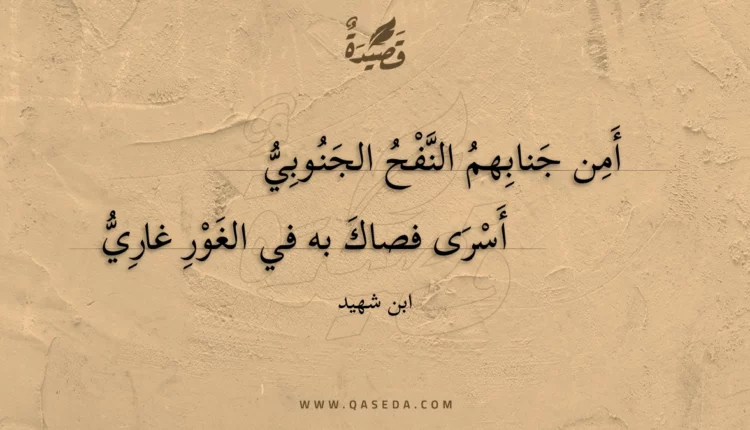 قَصِيدَةٌ
أَمِن جَنابِهمُ النَّفْحُ الجَنُوبِيُّ
أَسْرَى فصاكَ به في الغَوْرِ غارِيُّ
ابن شهيد
WWW.QASEDA.COM